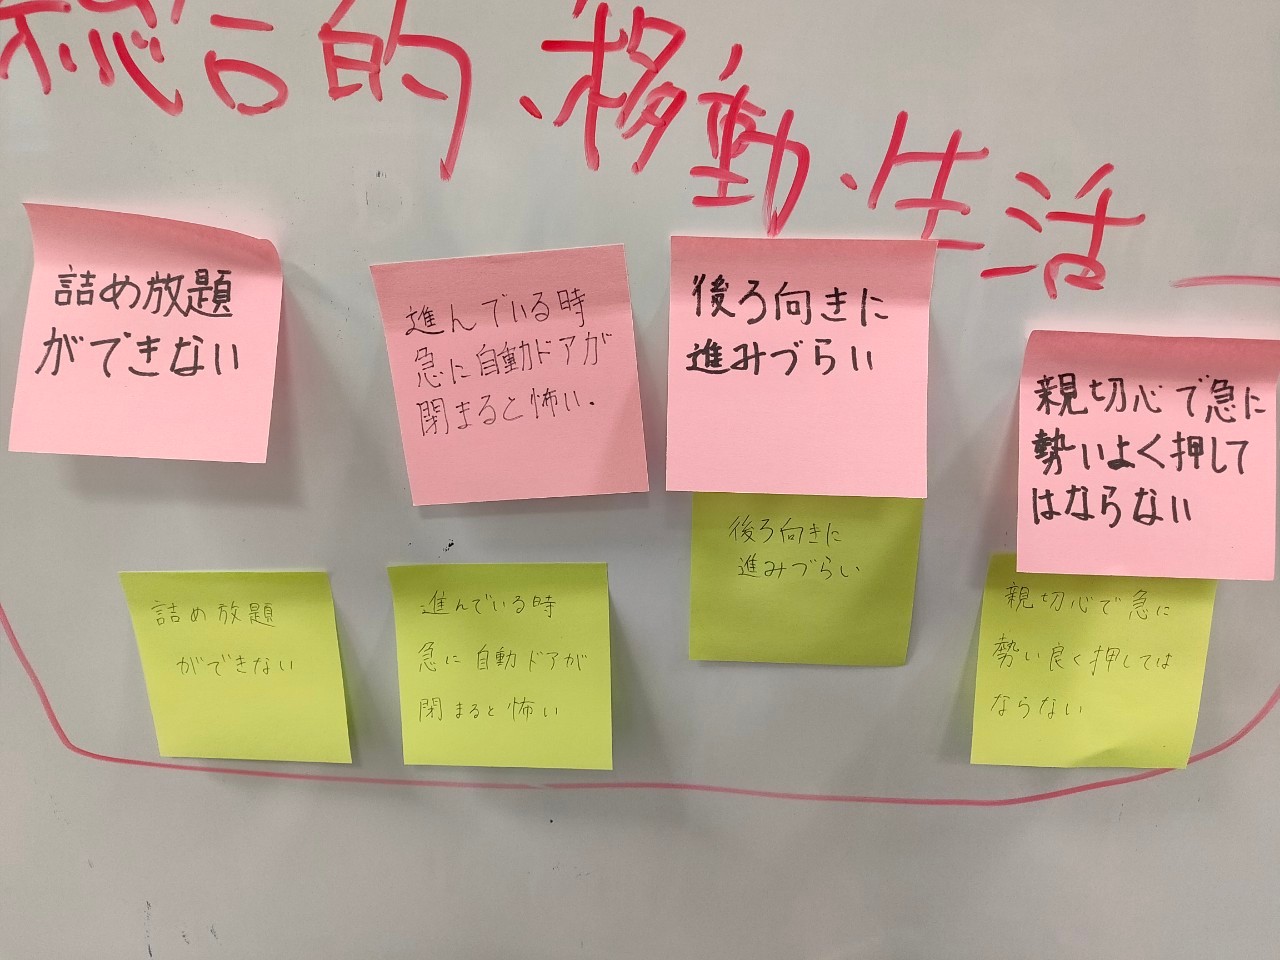 総合的、移動・生活
詰め放題
ができない
進んでいる時
急に自動ドアが
閉まると怖い.
後ろ向きに
進みづらい
親切心で急に
勢いよく押して
はならない
詰め放題
ができない
進んでいる時
急に自動ドアが
閉まると怖い
後ろ向きに
進みづらい
親切心で急に
勢い良く押しては
ならない